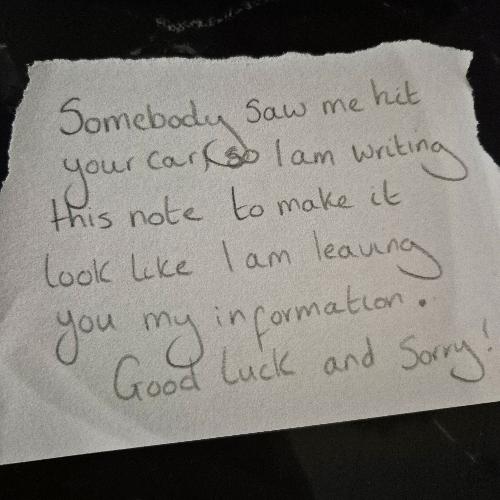 Somebody saw me hit
your car, so I am writing
this note to make it
look like I am leaving
you my information.
Good luck and Sorry!